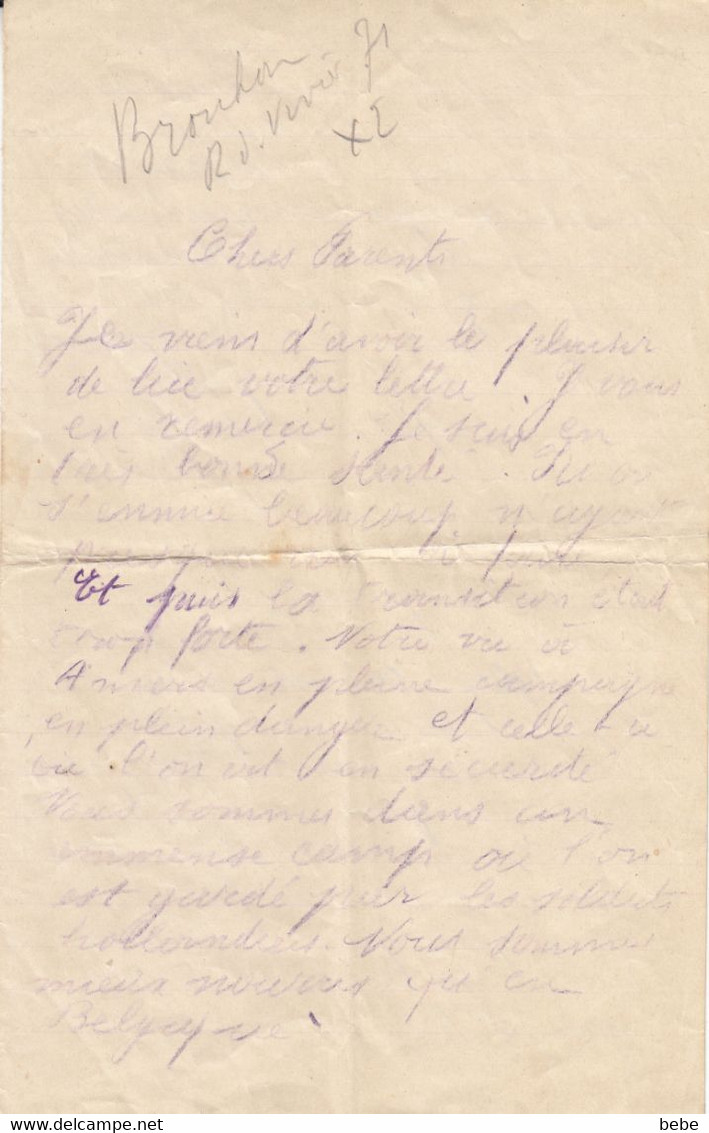 Brouhon
R d. Vivier 71
XL
Chers Parents
Je viens d'avoir le plaisir
de lire votre lettre. J vous
en remercie. Je suis en
très bonne santé.
s'ennuie beaucoup n'ayant
presque rien à faire
Et puis la transition était
trop forte. Votre vie à
Anvers en pleine campagne
en plein danger et celle-ci
où l'on vit en sécurité
Nous sommes dans un
immense camp où l'on
est gardé par les soldats
hollandais. Nous sommes
mieux nourris qu'en
Belgique
www.delcampe.net
bebe